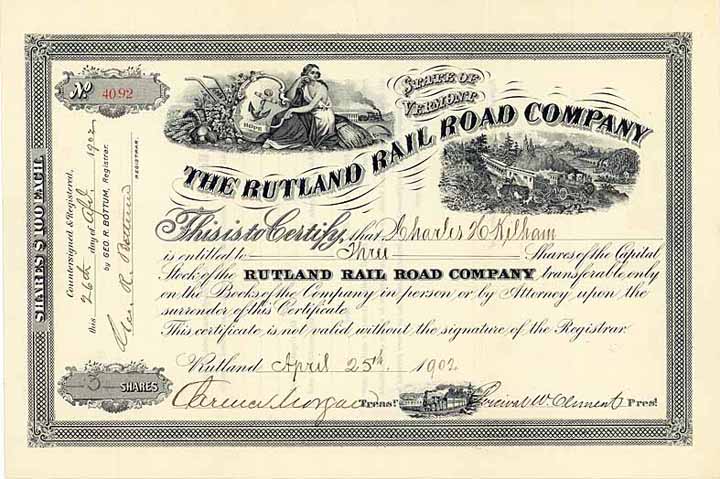 No 4092
HOPE
STATE OF
VERMONT
THE RUTLAND RAIL ROAD COMPANY
This is to Certify, that Charles H Kelham
is entitled to Three Shares of the Capital
Stock of the RUTLAND RAIL ROAD COMPANY transferable only
on the Books of the Company in person or by Attorney upon the
surrender of this Certificate
This certificate is not valid without the signature of the Registrar.
Rutland April 25th 1902
Clarence Morgan Treasr. Percival W. Clement Prest.
SHARES $100 EACH.
Countersigned & Registered,
this 26th day of Apl 1902
by GEO. R. BOTTUM, Registrar.
Geo. R. Bottum
REGISTRAR.
3 SHARES